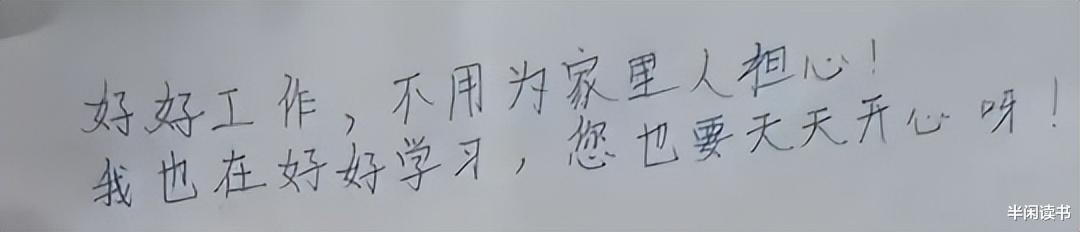 好好工作，不用为家里人担心！
我也在好好学习，您也要天天开心呀！
半闲读书